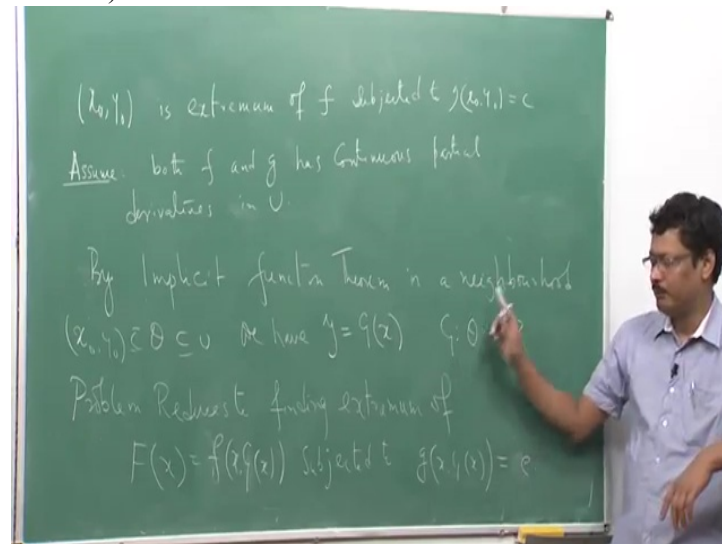 (x₀, y₀) is extremum of f subjected t g(x₀, y₀) = c
Assume: both f and g has Continuous partial
derivatives in U.
By Implicit function Theorem in a neighbourhood
(x₀, y₀) ⊆ θ ⊆ U we have y = G(x) G: θ
Problem Reduces t finding extremum of
F(x) = f(x, G(x)) Subjected t g(x, G(x)) = c